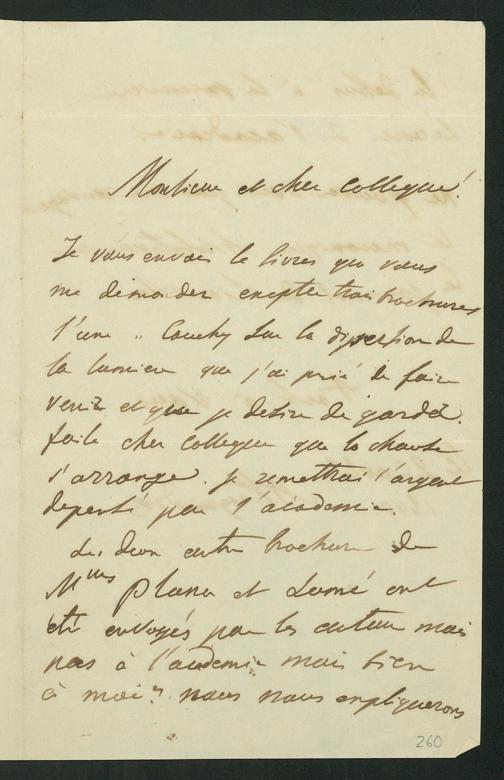 Monsieur et cher Collegue!
Je vous envois le livres que vous
me demander excepter trois brochures
l'une " Cauchy sur la dispersion de
la lumiere que j'ai prié de faire
venir et que je desire de garder.
faite cher Collegue que la chause
s'arrange. je remettrai l'argent
deporsé par l'academie.
Les deux autre brochure de
Mrss Plana et Lamé ont
eté envoyés par les auteur mais
pas à l'academie mais bien
à moi. nous nous expliquerons
260